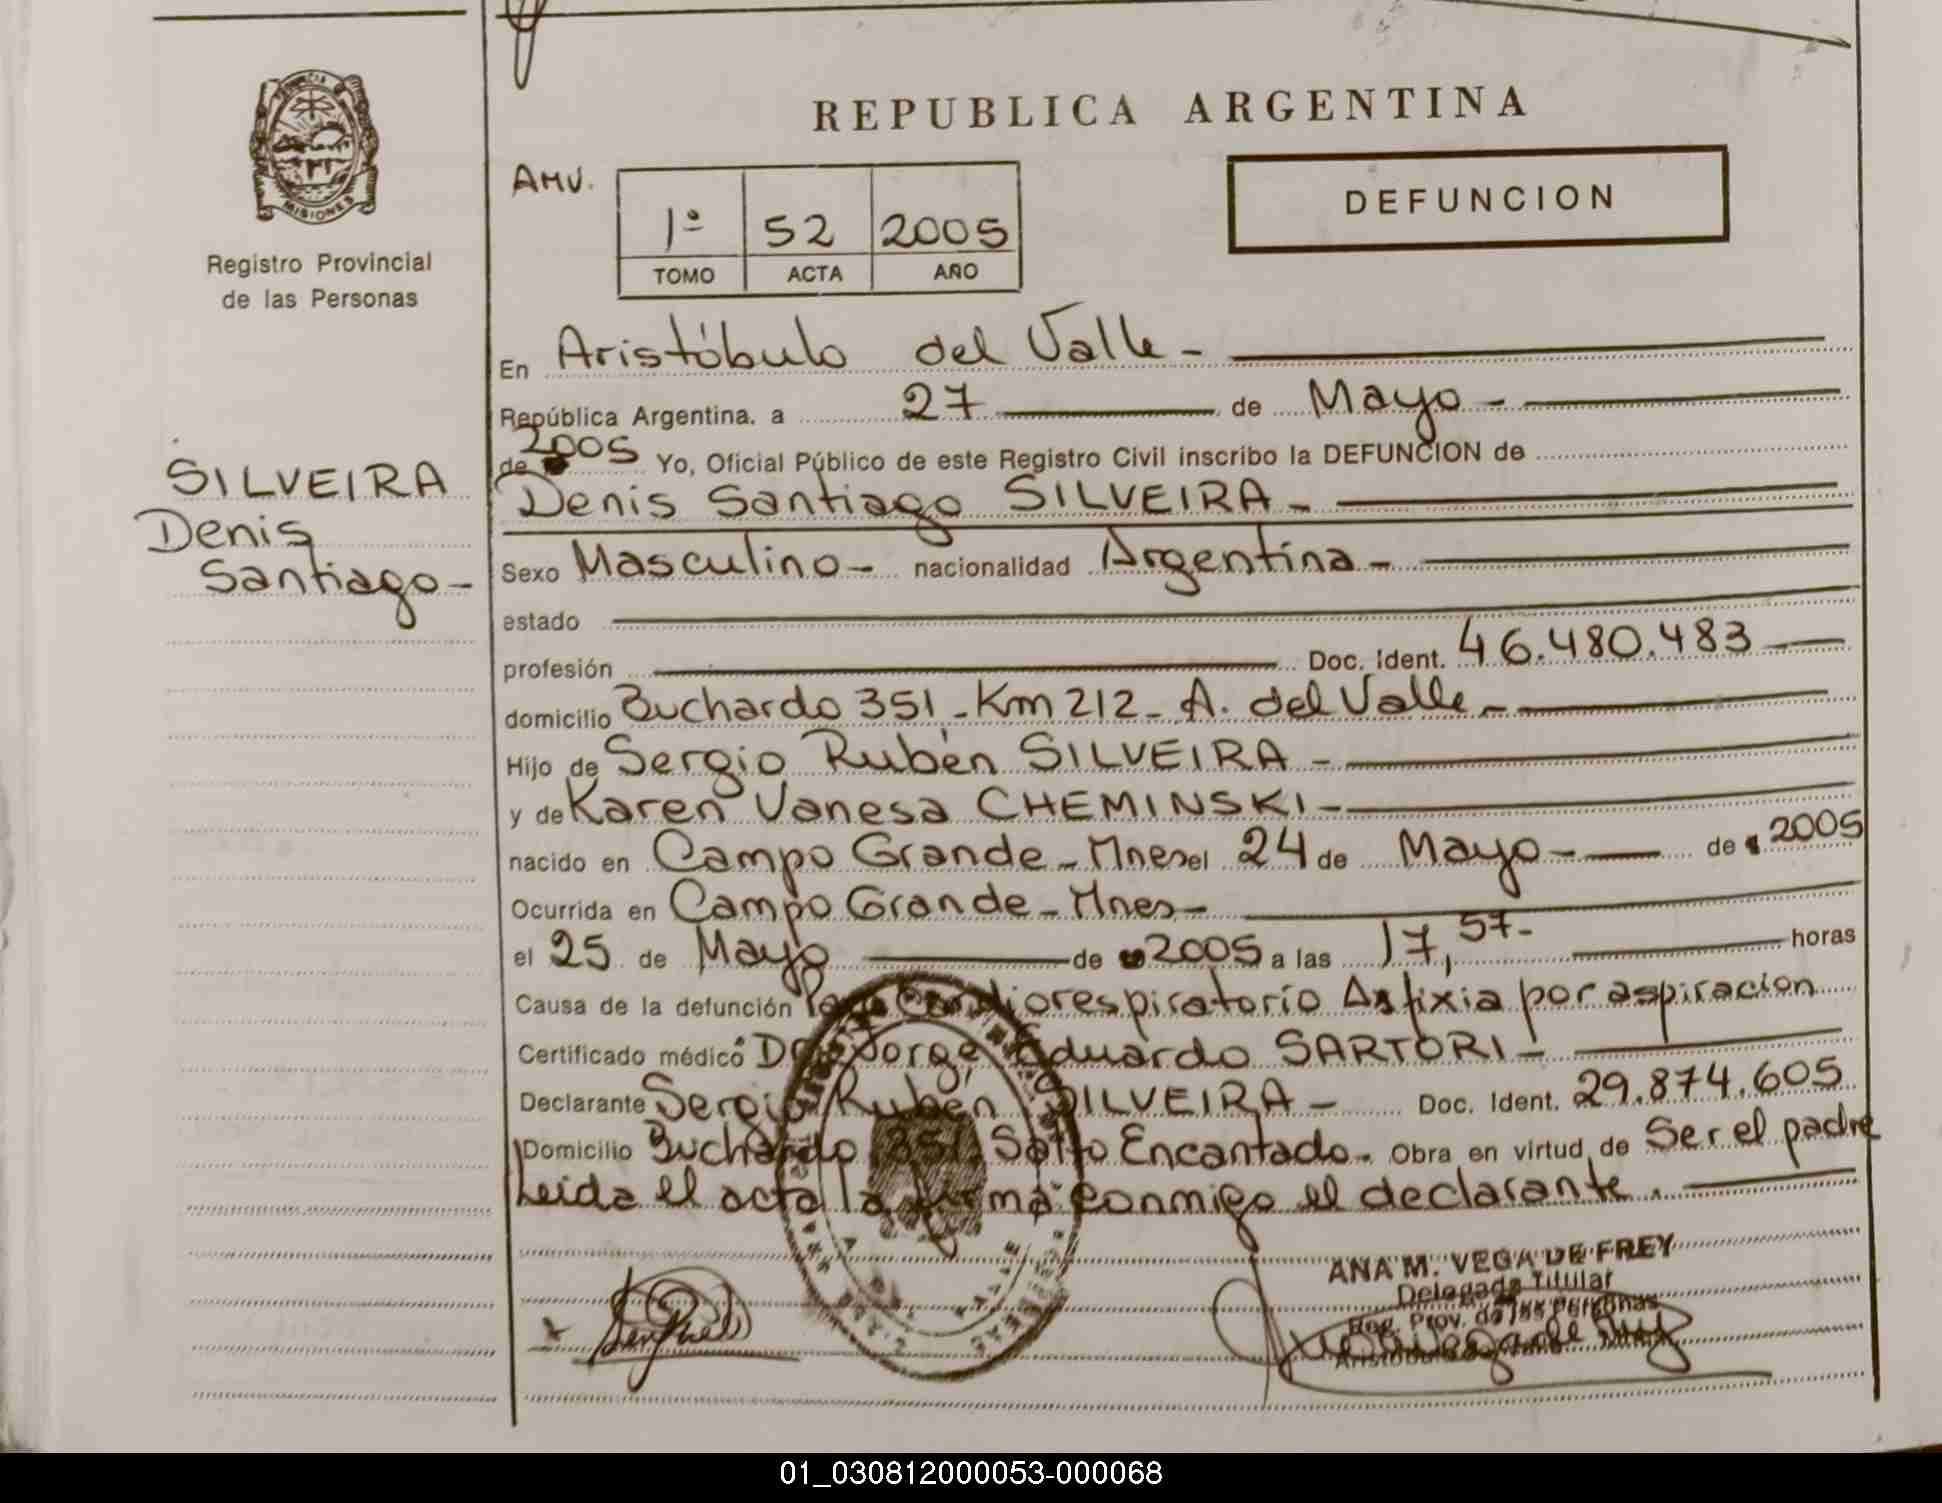 REPUBLICA ARGENTINA
PROVINCIA
MISIONES
Registro Provincial
de las Personas
AMV.
1º 52 2005
TOMO ACTA AÑO
DEFUNCION
SILVEIRA
Denis
Santiago-
En Aristóbulo del Valle-
República Argentina. a 27 de Mayo-
de 2005 Yo, Oficial Público de este Registro Civil inscribo la DEFUNCION de
Denis Santiago SILVEIRA-
Sexo Masculino- nacionalidad Argentina-
estado
profesión Doc. Ident. 46.480.483
domicilio Buchardo 351-Km 212-A. del Valle-
Hijo de Sergio Rubén SILVEIRA-
y de Karen Vanesa CHEMINSKI-
nacido en Campo Grande-Mnes el 24 de Mayo- de 2005
Ocurrida en Campo Grande-Mnes-
el 25 de Mayo de 2005 a las 17,57- horas
Causa de la defunción Paro Cardiorespiratorio Asfixia por aspiracion
Certificado médico Dr. Jorge Eduardo SARTORI-
Declarante Sergio Rubén SILVEIRA- Doc. Ident. 29.874.605
Domicilio Buchardo 351 Salto Encantado. Obra en virtud de Ser el padre
Leida el acta la firma conmigo el declarante.
ANA M. VEGA DE FREY
Delegada Titular
Reg. Prov. de las Personas
01_030812000053-000068